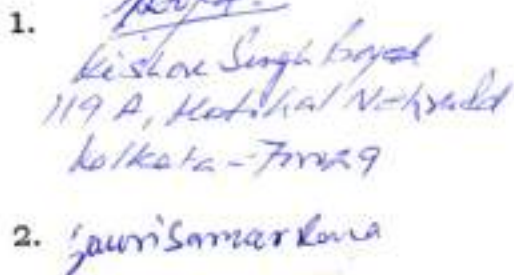 1.
Kishore Singh Boyed
119 A, Motilal Nehru Rd
Kolkata - 700029
2. Gauri Samar Rana